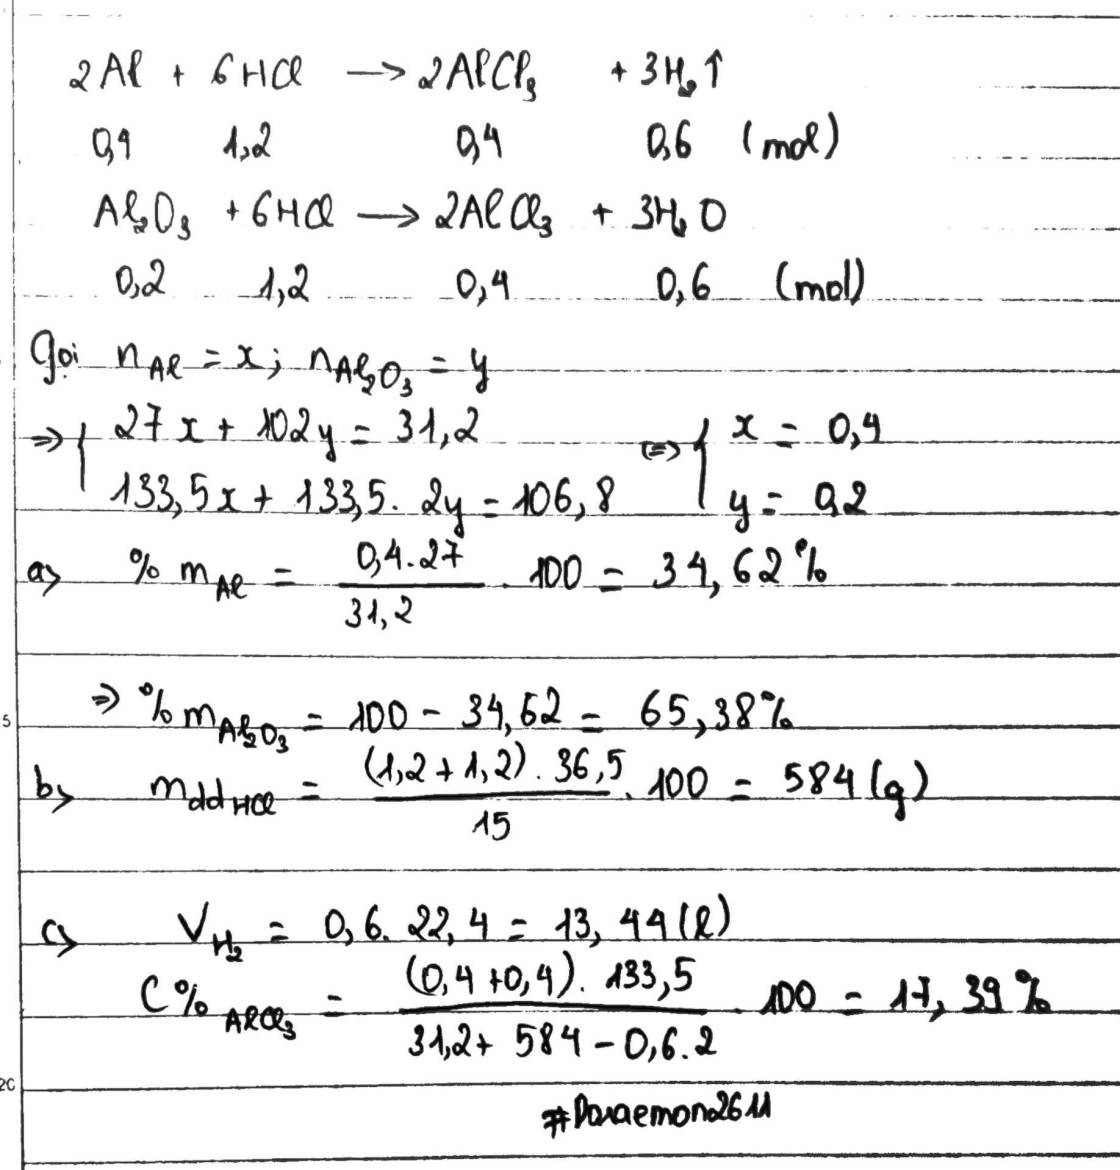 2Al + 6HCl → 2AlCl₃ + 3H₂↑
0,4 1,2 0,4 0,6 (mol)
Al₂O₃ + 6HCl → 2AlCl₃ + 3H₂O
0,2 1,2 0,4 0,6 (mol)
Gọi n_Al = x; n_Al₂O₃ = y
=> { 27x + 102y = 31,2 <=> { x = 0,4
133,5x + 133,5. 2y = 106,8 y = 0,2
a> % m_Al = 0,4.27 / 31,2 . 100 = 34,62%
=> % m_Al₂O₃ = 100 - 34,62 = 65,38%
b> m_dd HCl = (1,2 + 1,2) . 36,5 / 15 . 100 = 584 (g)
c> V_H₂ = 0,6. 22,4 = 13,44 (l)
C%_AlCl₃ = (0,4 + 0,4). 133,5 / 31,2 + 584 - 0,6.2 . 100 = 17,39%
#Doraemon2611
5
20